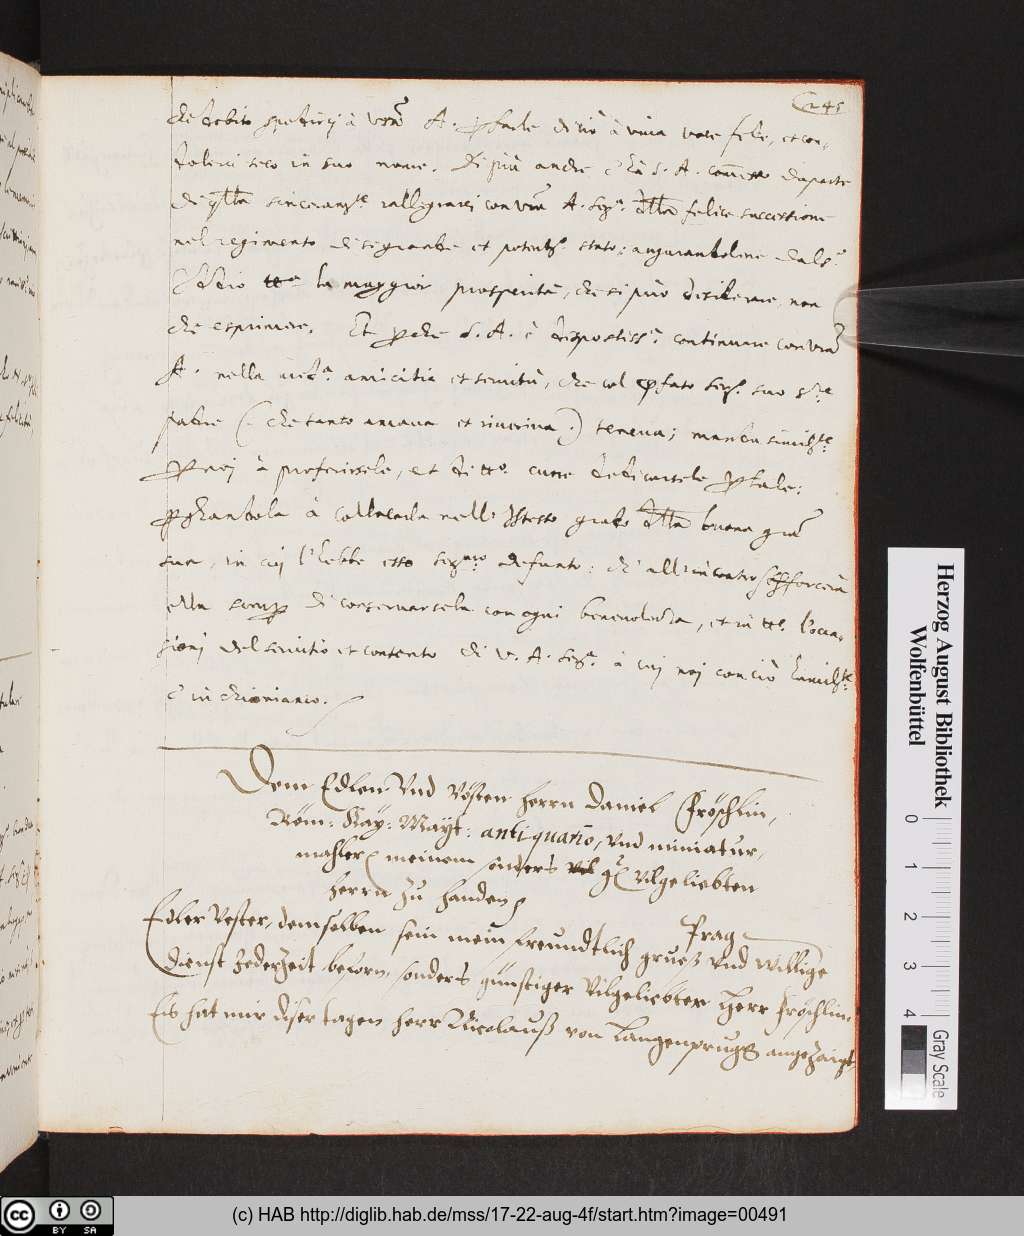 245
che debito spedirsi à Vra A. per farle di ciò à viva voce fede, et con,
dolersi seco in suo nome. Di più anche è che S. A. daparte
di sinceramte rallegrarsi con Vra A. Sermª. della felice successione
nel regimento di sì grande et potente stato; augurandolene dal S.
Iddio la maggior prosperità, che si può desiderare, non
che esprimere. Et perche S. A. è dispostissª. continuare con Vra
A. nella amicitia et servitù, che col pfato suo
padre (che tanto amava et riveriva) teneva; manda
noi à proferirsele, et dedicarsele per tale;
pregandola à collocarla nell' istesso grado della buona grã
sua, in cui l'hebbe esso defunto: che all'incontro
ella semp di conservarsela con ogni benevolenza, et in l'occa,
sioni del servitio et contento di V. A. Sermª. à cui noi con ciò
c' inchiniamo.
Dem Edlen Vnd Vösten herrn Daniel Fröschlin,
Röm: Kay: Mayt: antiquario, vnd miniatur,
mahler meinem sonders vilgeliebten
herrn zu handen
Prag
Edler Vester, demselben sein mein freundtlich grues vnd willige
dienst Jederzeit beforn, sonders günstiger Vilgeliebter herr Fröschlin.
Es hat mir diser tagen herr Nicolauß von Langenprugg angezaigt
Herzog August Bibliothek
Wolfenbüttel
0 1 2 3 4
Gray Scale
cc BY SA
(c) HAB http://diglib.hab.de/mss/17-22-aug-4f/start.htm?image=00491